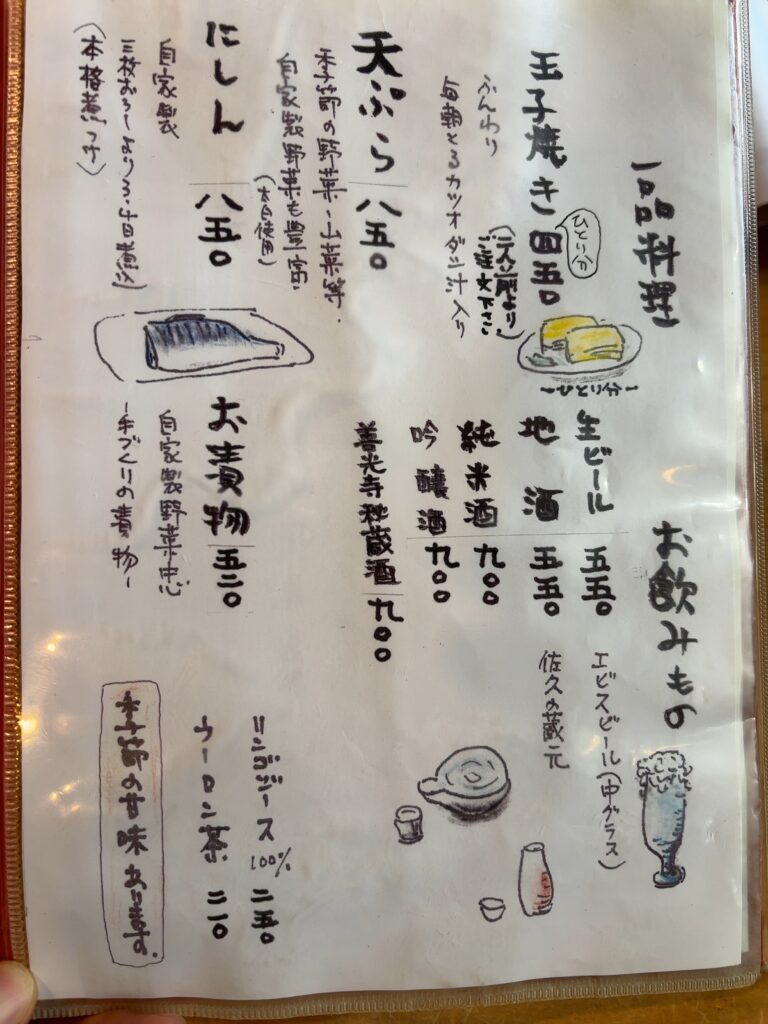 一品料理
玉子焼き 四五〇
ひとり分
ふんわり
毎朝とるカツオダシ汁入り
(二人前より
ご注文下さい)
ーひとり分ー
天ぷら 八五〇
季節の野菜・山菜等・
自家製野菜も豊富・
にしん 八五〇
自家製
三枚おろしより3・4日煮込
(本格煮つけ)
お漬物 五二〇
自家製野菜中心
ー手づくりの漬物ー
お飲みもの
生ビール 五五〇
エビスビール(中グラス)
地酒 五五〇
佐久の蔵元
純米酒 九〇〇
吟醸酒 九〇〇
善光寺秘蔵酒 九〇〇
リンゴジュース 100% 二五〇
ウーロン茶 二二〇
季節の甘味あります。